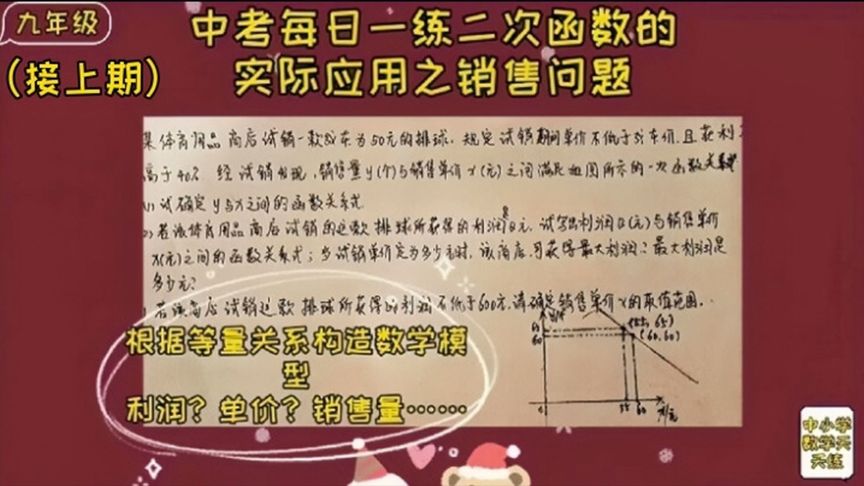 九年级
中考每日一练二次函数的
(接上期)
实际应用之销售问题
某体育用品商店试销一款成本为50元的排球,规定试销期间单价不低于成本价,且获利
高于40% 经试销发现,销售量y(个)与销售单价x(元)之间满足如图所示的一次函数关系
(1)试确定y与x之间的函数关系式
若该体育用品商店试销的这款排球所获得的利润Q元,试写出利润Q(元)与销售单价
x(元)之间的函数关系式;当试销单价定为多少元时,该商店可获得最大利润?最大利润是
多少元?
若该商店试销这款排球所获得的利润不低于600元,请确定销售单价x的取值范围.
(55,65)
65
60
(60,60)
根据等量关系构造数学模
型
利润?单价?销售量……
0
55 60
x/元
中小学
数学天
天练